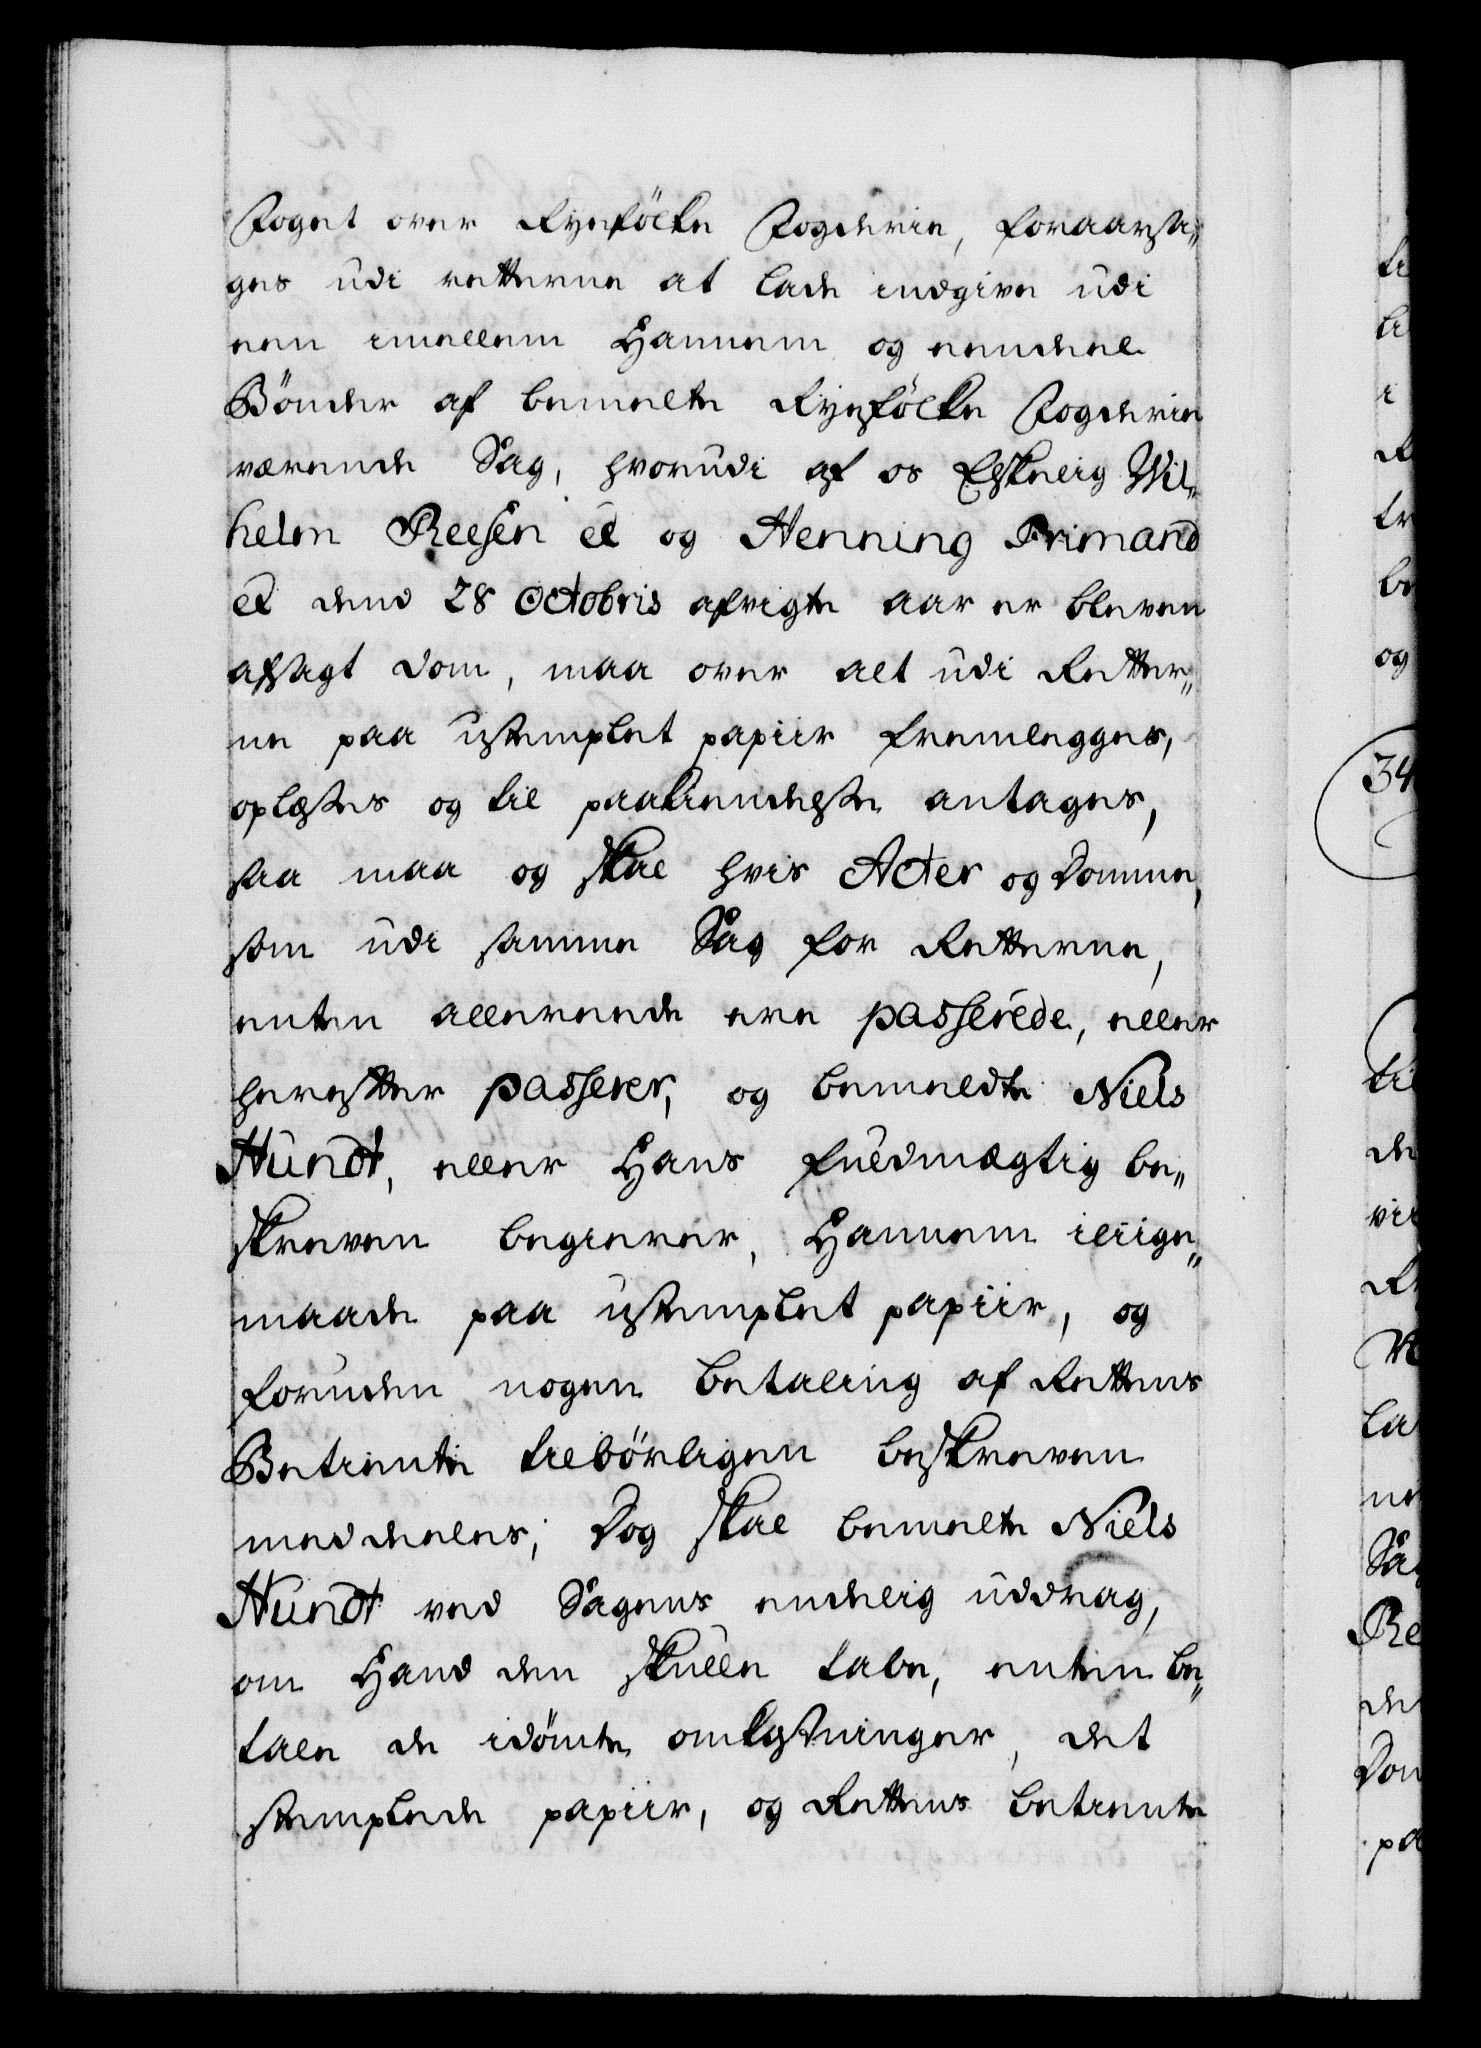 Foget over Ryefölke Fogderie, foraarsa„
ges udi retterne at lade indgive udi
een imellem Hannem og eendeel
Bönder af bemelte Ryefölke Fogderie
værende Sag, hvorudi af os Elskelig Wil„
helm Reesen &c og Henning Frimand
&c dend 28 Octobris afvigte aar er bleven
afsagt dom, maa over alt udi Retter„
ne paa ustemplet papiir fremlegges,
oplæses og til paakiendelse antages,
saa maa og skal hvis Acter og Domme,
som udi samme Sag for Retterne,
enten allereede ere passerede, eller
herefter passerer, og bemeldte Niels
Hundt, eller Hans fuldmægtig be„
skreven begierer, Hannem iliige„
maade paa ustemplet papiir, og
foruden nogen betaling af Rettens
Betiente tilbörligen beskreven
meddeeles; Dog skal bemelte Niels
Hundt ved Sagens endelig uddrag,
om Hand den skulle tabe, enten be„
tale de idömte omkostninger, det
stemplede papiir, og Rettens betiente